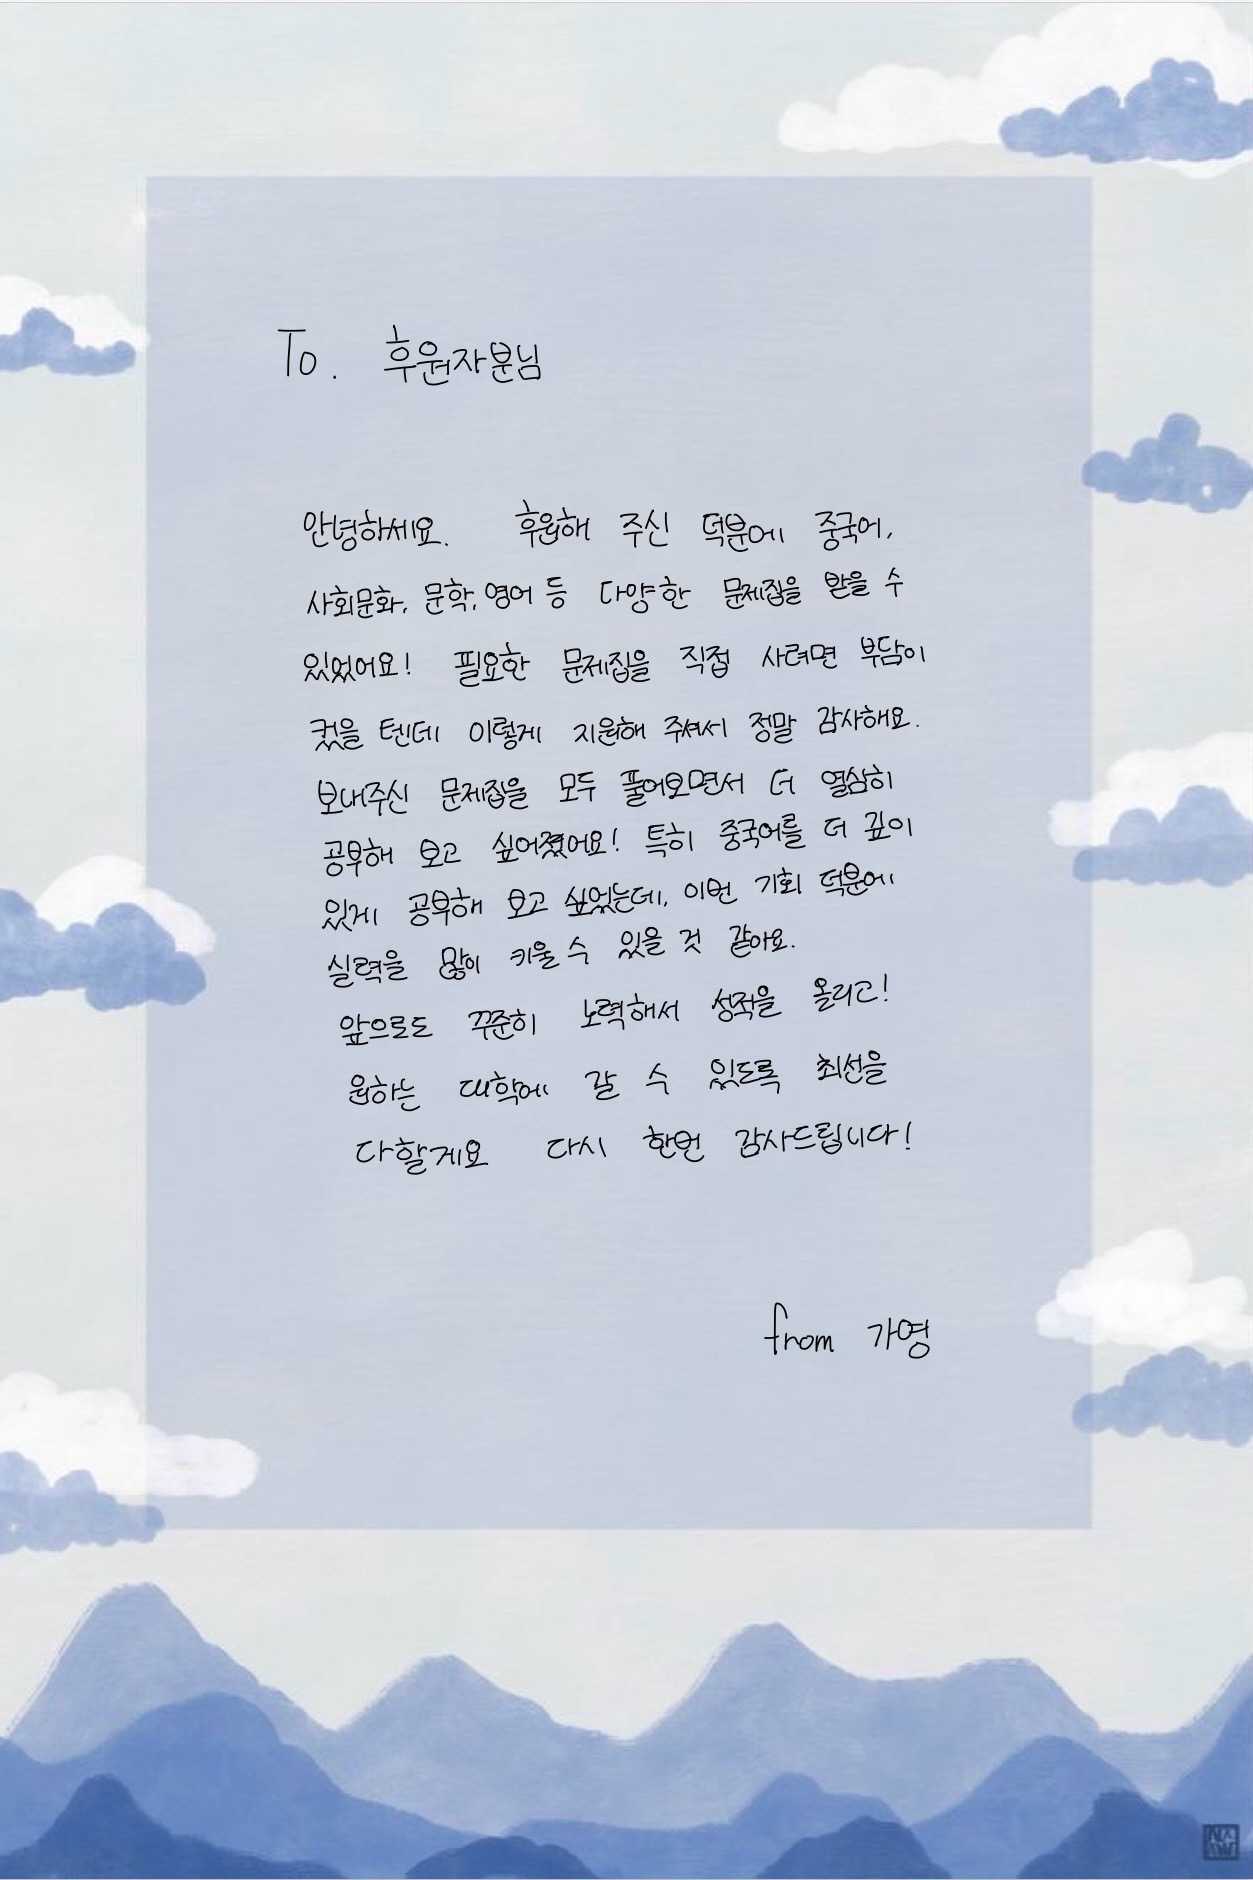 To. 후원자분님
안녕하세요. 후원해 주신 덕분에 중국어,
사회문화, 문학, 영어 등 다양한 문제집을 받을 수
있었어요! 필요한 문제집을 직접 사려면 부담이
컸을 텐데 이렇게 지원해 주셔서 정말 감사해요.
보내주신 문제집을 모두 풀어보면서 더 열심히
공부해 보고 싶어졌어요! 특히 중국어를 더 깊이
있게 공부해 보고 싶었는데, 이번 기회 덕분에
실력을 많이 키울 수 있을 것 같아요.
앞으로도 꾸준히 노력해서 성적을 올리고!
원하는 대학에 갈 수 있도록 최선을
다할게요 다시 한번 감사드립니다!
from 가영